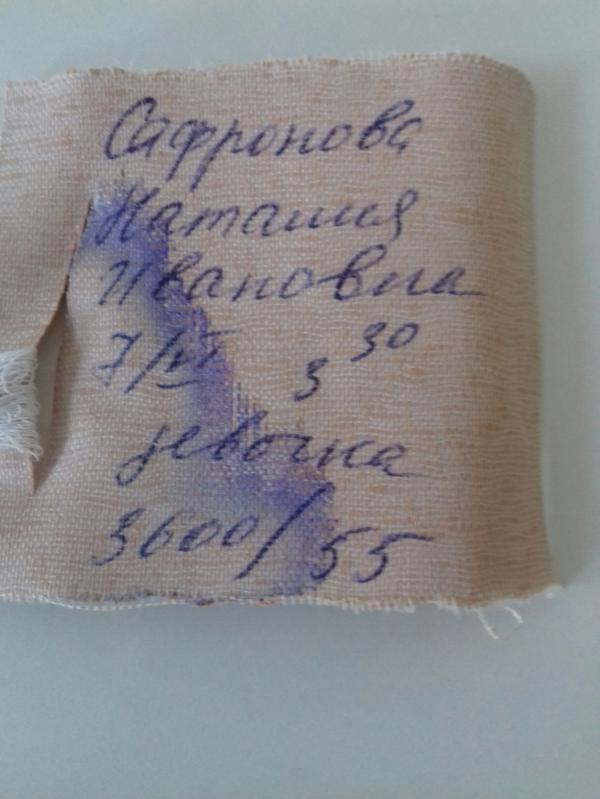 Сафронова
Наталия
Ивановна
7/VI 3 30
девочка
3600/55